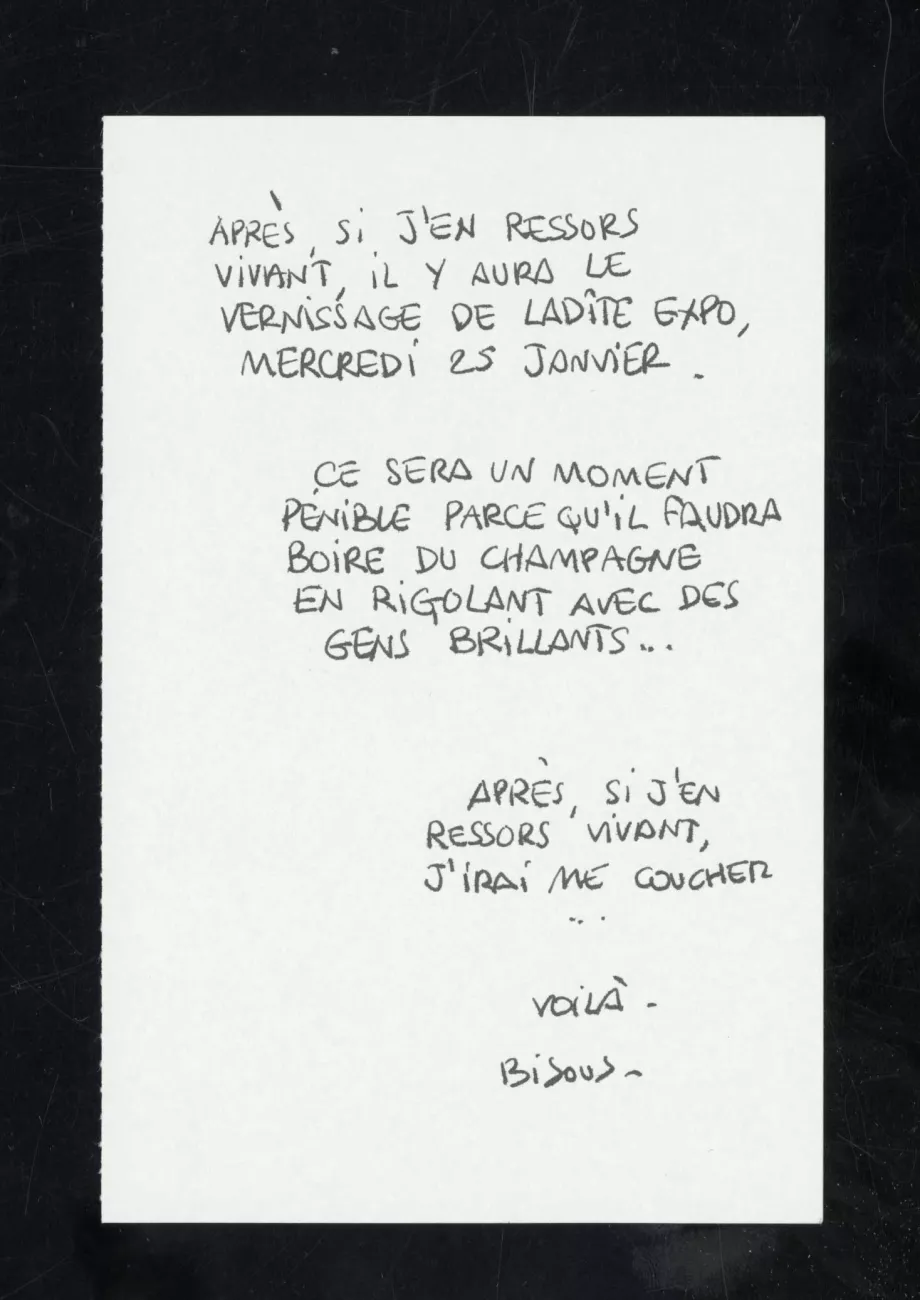 APRÈS, Si J'EN RESSORS
ViVANT, iL Y AURA LE
VERNiSSAGE DE LADÎTE EXPO,
MERCREDi 25 JANViER.
CE SERA UN MOMENT
PÉNiBLE PARCE QU'iL FAUDRA
BOiRE DU CHAMPAGNE
EN RiGOLANT AVEC DES
GENS BRiLLANTS...
APRÈS, Si J'EN
RESSORS ViVANT,
J'iRAi ME COUCHER
...
VOiLÀ -
BiSOUS ~